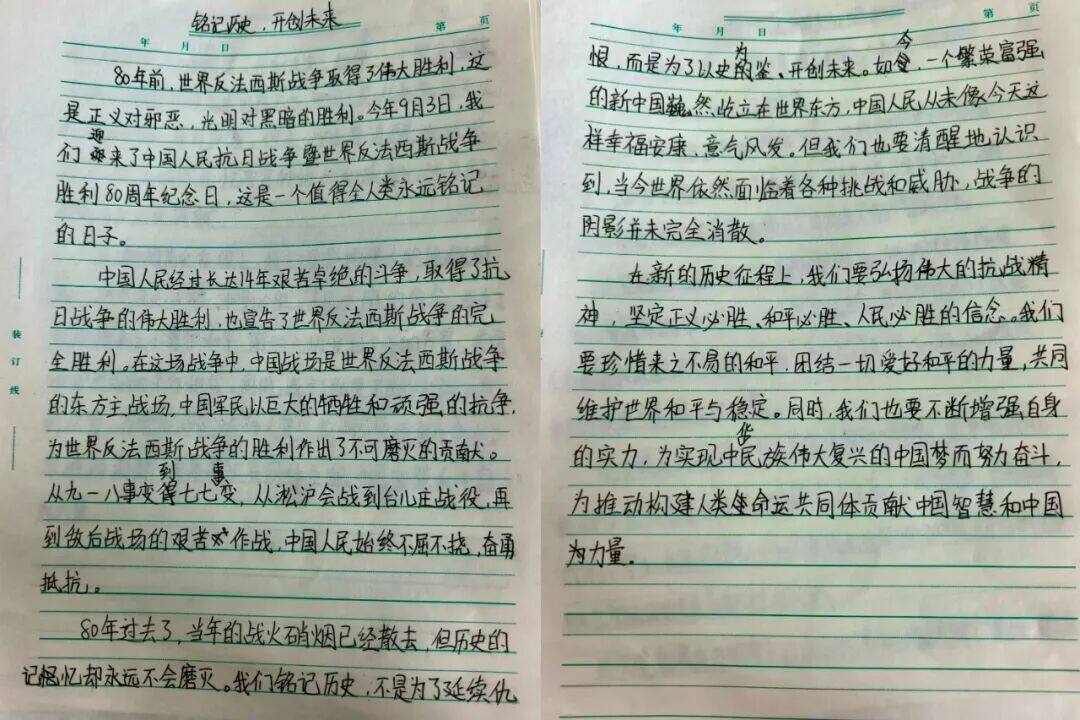 铭记历史，开创未来
年 月 日
第 页
80年前，世界反法西斯战争取得了伟大胜利，这
是正义对邪恶，光明对黑暗的胜利。今年9月3日，我
们迎来了中国人民抗日战争暨世界反法西斯战争
胜利80周年纪念日，这是一个值得全人类永远铭记
的日子。
中国人民经过长达14年艰苦卓绝的斗争，取得了抗
日战争的伟大胜利，也宣告了世界反法西斯战争的完
全胜利。在这场战争中，中国战场是世界反法西斯战争
的东方主战场，中国军民以巨大的牺牲和顽强的抗争，
为世界反法西斯战争的胜利作出了不可磨灭的贡献。
从九一八事变到七七事变，从淞沪会战到台儿庄战役，再
到敌后战场的艰苦作战，中国人民始终不屈不挠，奋勇
抵抗。
80年过去了，当年的战火硝烟已经散去，但历史的
记忆却永远不会磨灭。我们铭记历史，不是为了延续仇
装订线
年 月 日
第 页
恨，而是为了以史为鉴、开创未来。如今，一个繁荣富强
的新中国巍然屹立在世界东方，中国人民从未像今天这
样幸福安康、意气风发。但我们也要清醒地认识
到，当今世界依然面临着各种挑战和威胁，战争的
阴影并未完全消散。
在新的历史征程上，我们要弘扬伟大的抗战精
神，坚定正义必胜、和平必胜、人民必胜的信念。我们
要珍惜来之不易的和平，团结一切爱好和平的力量，共同
维护世界和平与稳定。同时，我们也要不断增强自身
的实力，为实现中华民族伟大复兴的中国梦而努力奋斗，
为推动构建人类命运共同体贡献中国智慧和中国
力量。